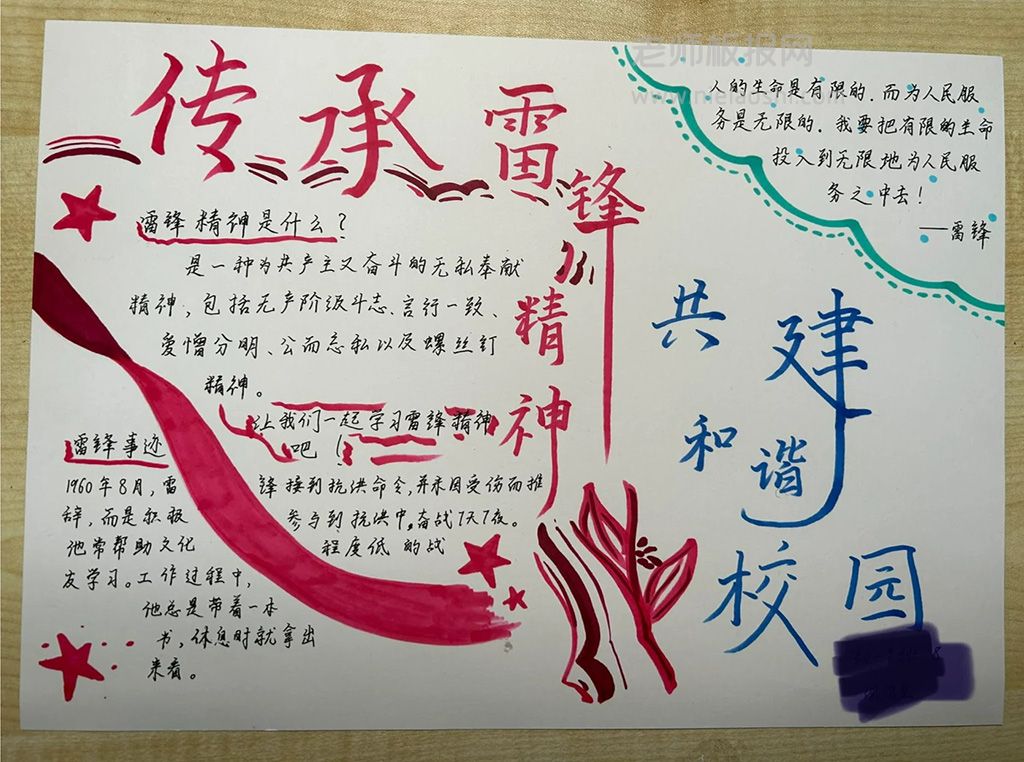 传承雷锋精神
老师板报网
人的生命是有限的.而为人民服
务是无限的.我要把有限的生命
投入到无限地为人民服
务之中去!
—雷锋
雷锋精神是什么?
是一种为共产主义奋斗的无私奉献
精神,包括无产阶级斗志、言行一致、
爱憎分明、公而忘私以及螺丝钉
精神。
让我们一起学习雷锋精神
吧!
雷锋事迹
1960年8月,雷锋接到抗洪命令,并未因受伤而推
辞,而是积极参与到抗洪中,奋战7天7夜。
他常帮助文化程度低的战
友学习。工作过程中,
他总是带着一本
书,休息时就拿出
来看。
共建
和谐
校园